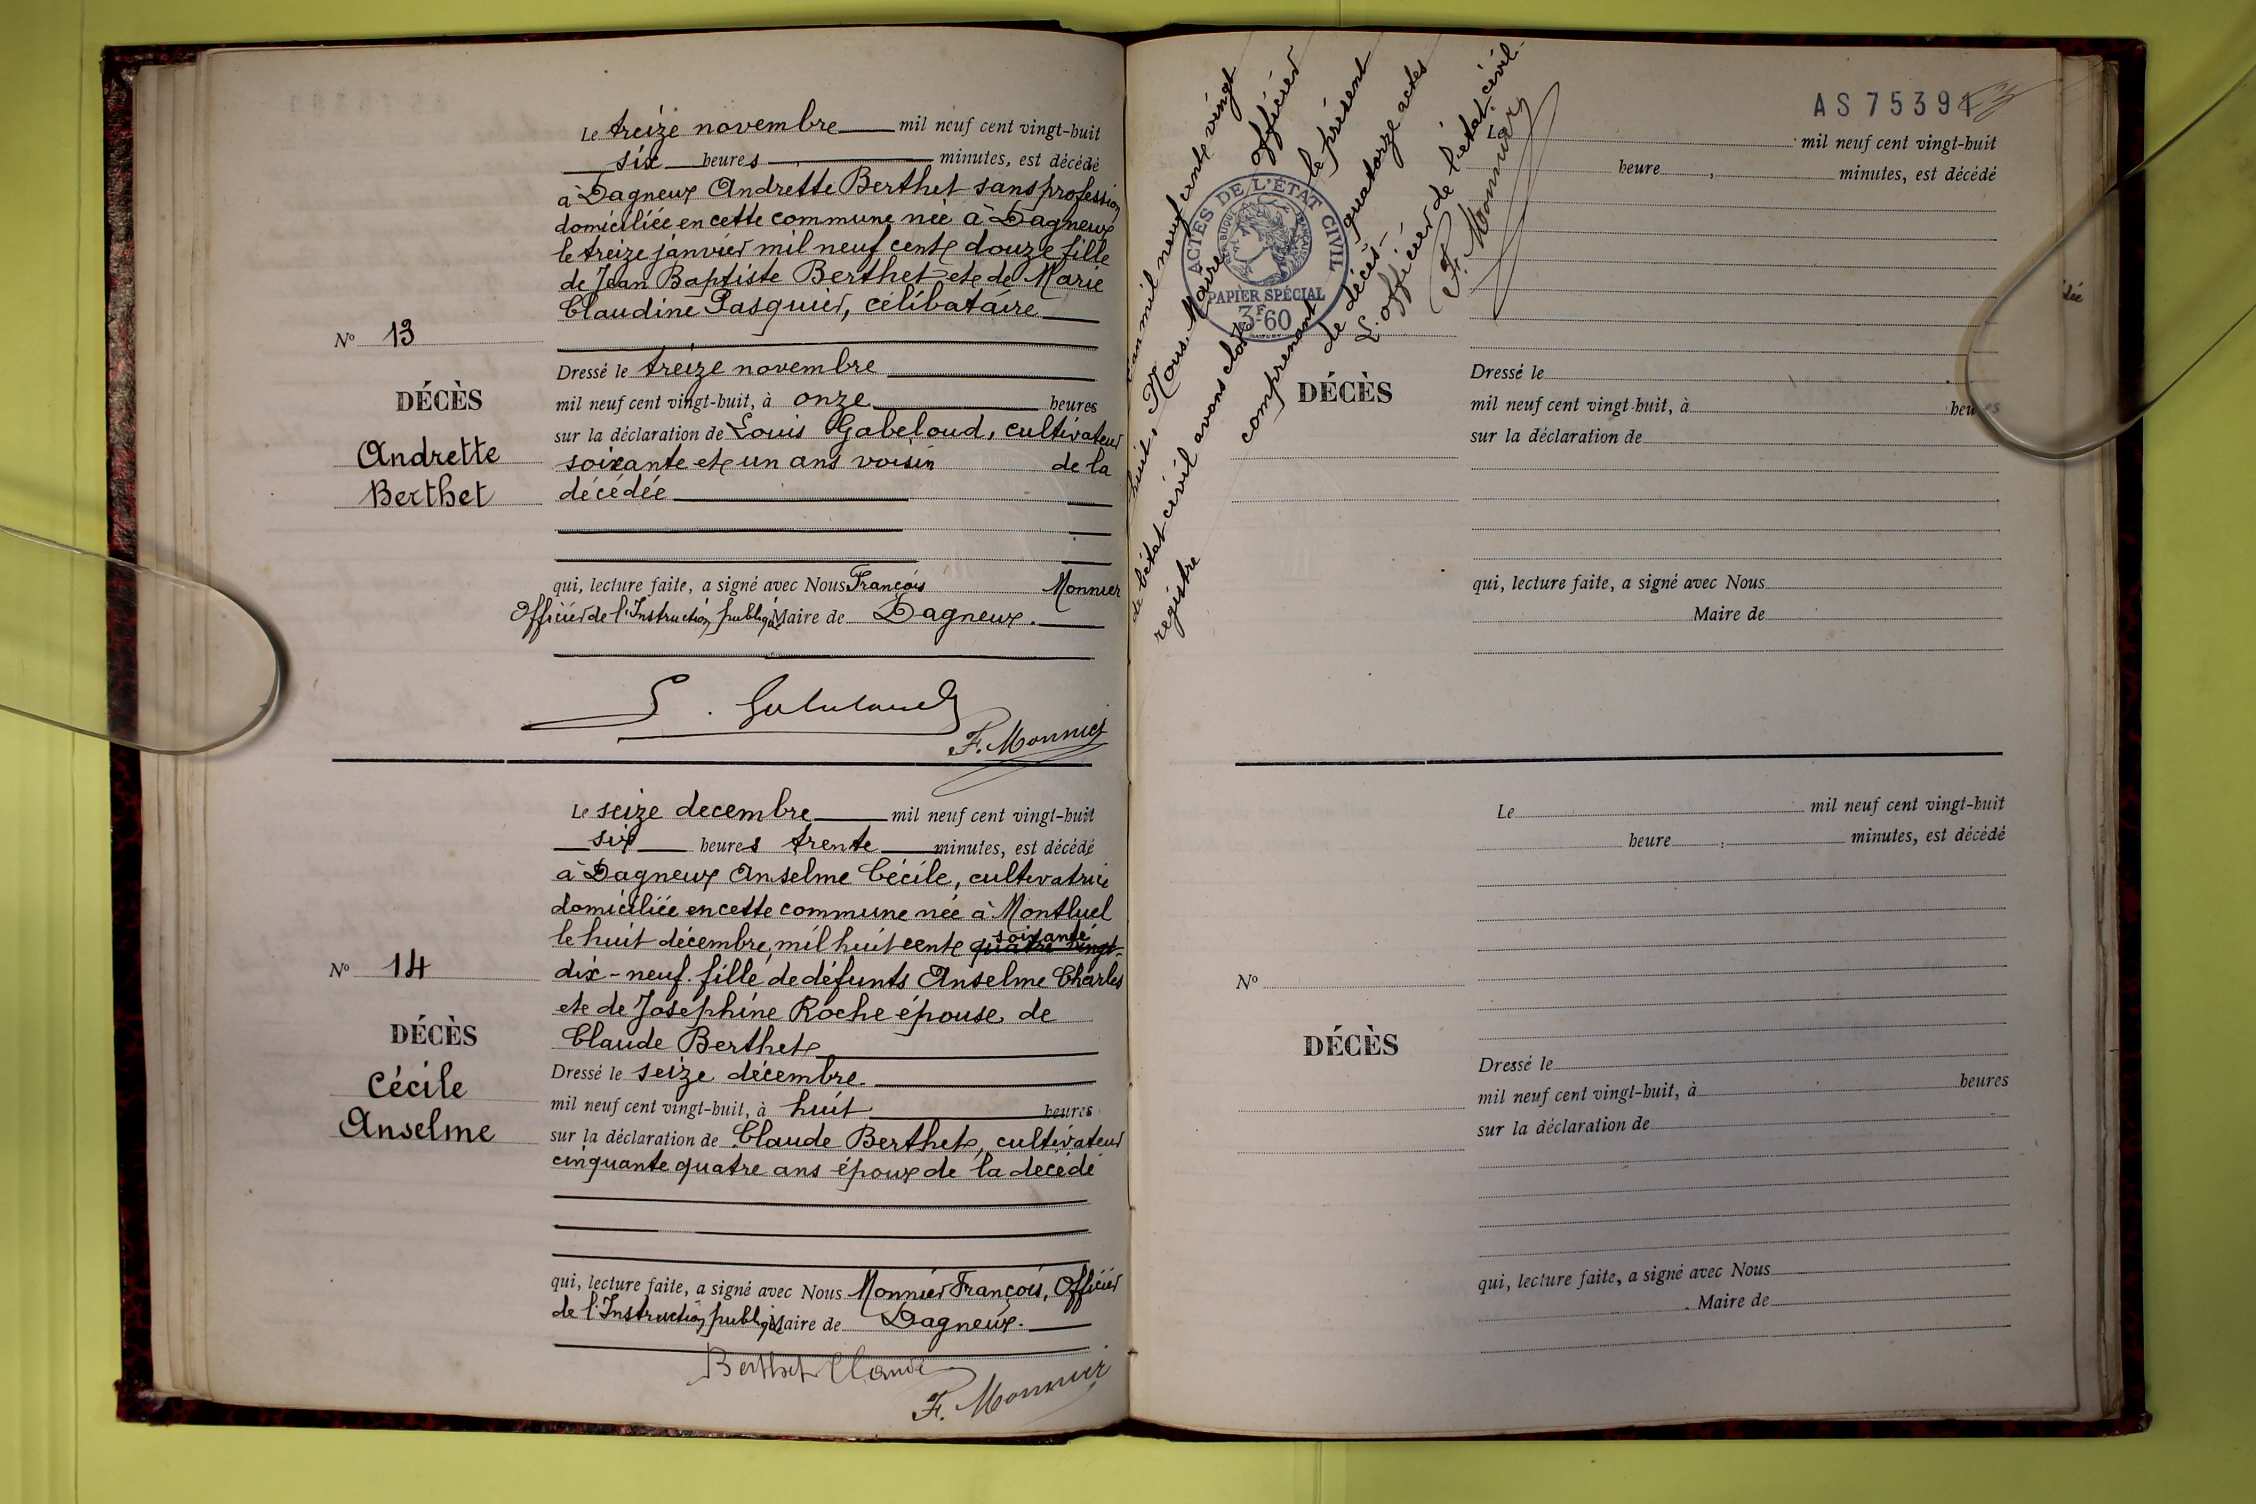 Le treize novembre mil neuf cent vingt-huit
six heures minutes, est décédé
à Dagneux Andrette Berthet sans profession
domiciliée en cette commune née à Dagneux
le treize janvier mil neuf cent douze fille
de Jean Baptiste Berthet et de Marie
Claudine Pasquier, célibataire
N° 13
DÉCÈS
Andrette
Berthet
Dressé le treize novembre
mil neuf cent vingt-huit, à onze heures
sur la déclaration de Louis Gabeloud, cultivateur
soixante et un ans voisin de la
décédée
qui, lecture faite, a signé avec Nous François Monnier
Officier de l'Instruction publique Maire de Dagneux.
F. Monnier
Le seize decembre mil neuf cent vingt-huit
six heures trente minutes, est décédé
à Dagneux Anselme Cécile, cultivatrice
domiciliée en cette commune née à Montluel
le huit décembre, mil huit cent quatre vingt soixante
dix-neuf. fille de défunts Anselme Charles
et de Joséphine Roche épouse de
Claude Berthet
N° 14
DÉCÈS
Cécile
Anselme
Dressé le seize décembre.
mil neuf cent vingt-huit, à huit heures
sur la déclaration de Claude Berthet, cultivateur
cinquante quatre ans époux de la decédé
qui, lecture faite, a signé avec Nous Monnier François, Officier
de l'Instruction publique Maire de Dagneux.
Berthet Claude
F. Monnier
l'an mil neuf cent vingt
huit, Nous, Maire officier
de l'état civil avons clos le présent
registre comprenant quatorze actes
de décès.
L'officier de l'état civil.
F. Monnier
ACTES DE L'ÉTAT CIVIL
RÉPUBLIQUE FRANÇAISE
PAPIER SPÉCIAL
3F60
AS 75391
Le mil neuf cent vingt-huit
heure , minutes, est décédé
DÉCÈS
Dressé le
mil neuf cent vingt-huit, à heures
sur la déclaration de
qui, lecture faite, a signé avec Nous
Maire de
Le mil neuf cent vingt-huit
heure , minutes, est décédé
N°
DÉCÈS
Dressé le
mil neuf cent vingt-huit, à heures
sur la déclaration de
qui, lecture faite, a signé avec Nous
Maire de